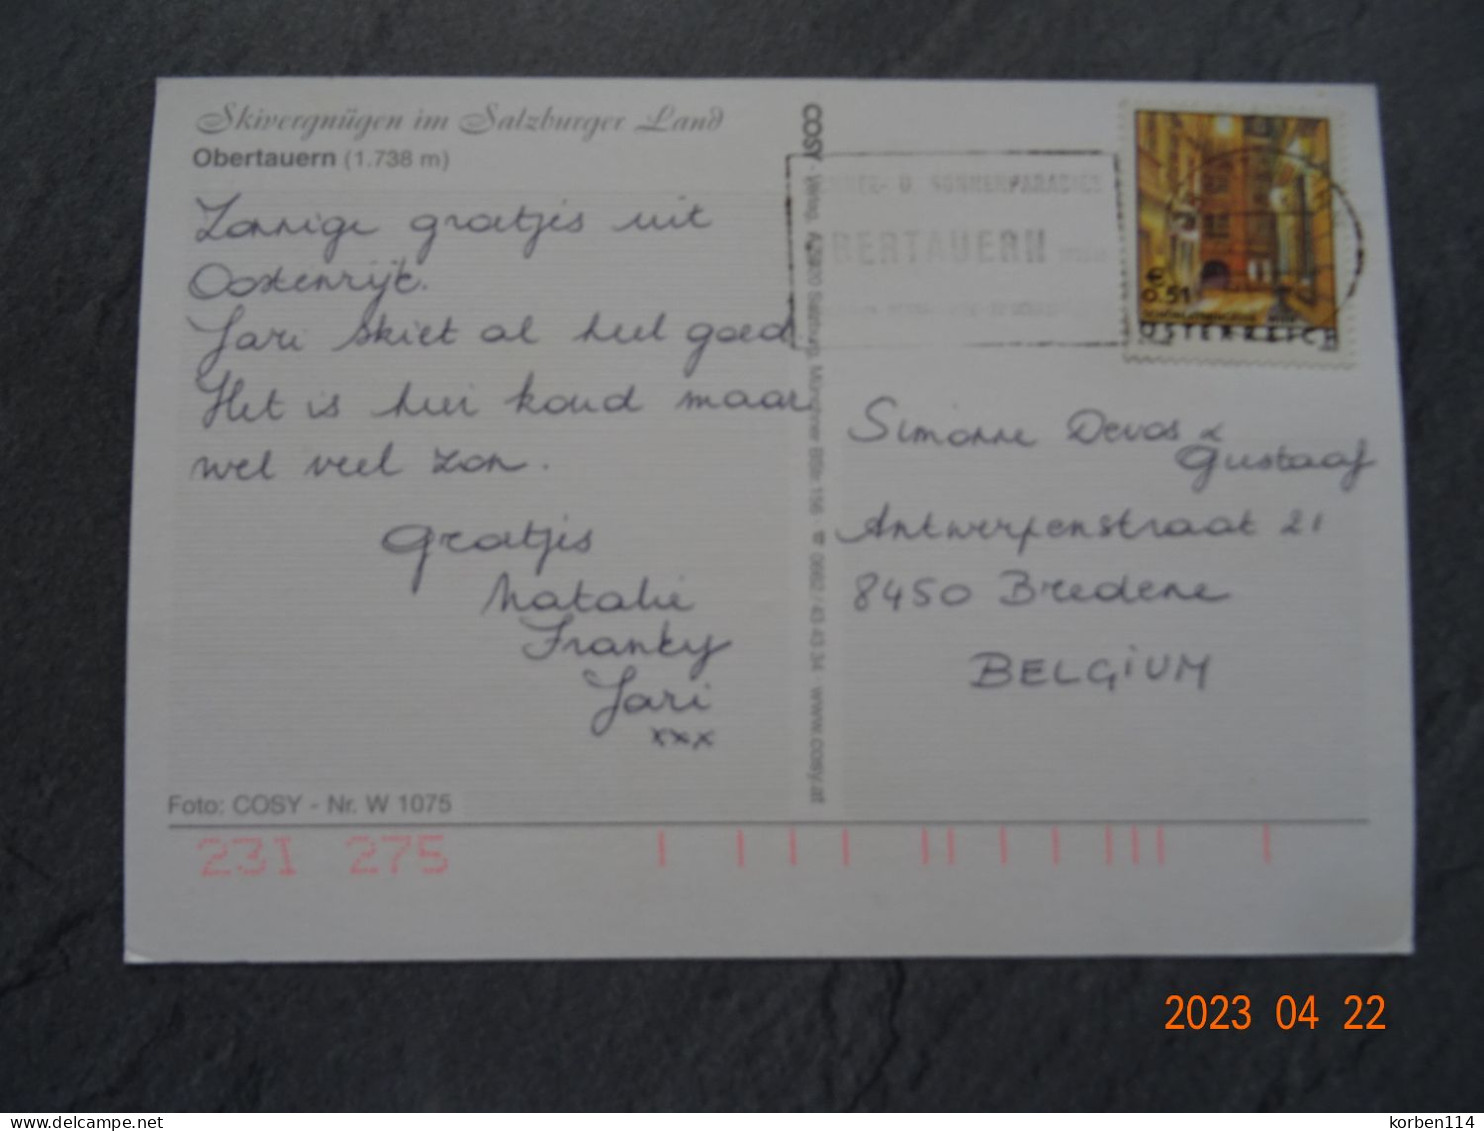 Skivergnügen im Salzburger Land
Obertauern (1.738 m)
Zonnige groetjes uit
Oostenrijk.
Jari skiet al heel goed
Het is hier koud maar
wel veel zon.
Groetjes
Natalie
Franky
Jari
xxx
Foto: COSY - Nr. W 1075
231 275
COSY - Verlag, A-5020 Salzburg, Münchner Bstr. 156 ☎ 0662 / 43 43 34 - www.cosy.at
U SONNENPARADIES
BERTAUERN
€
0.51
ÖSTERREICH
Simonne Devos &
Gustaaf
Antwerpenstraat 21
8450 Bredene
BELGIUM
2023 04 22
korben114